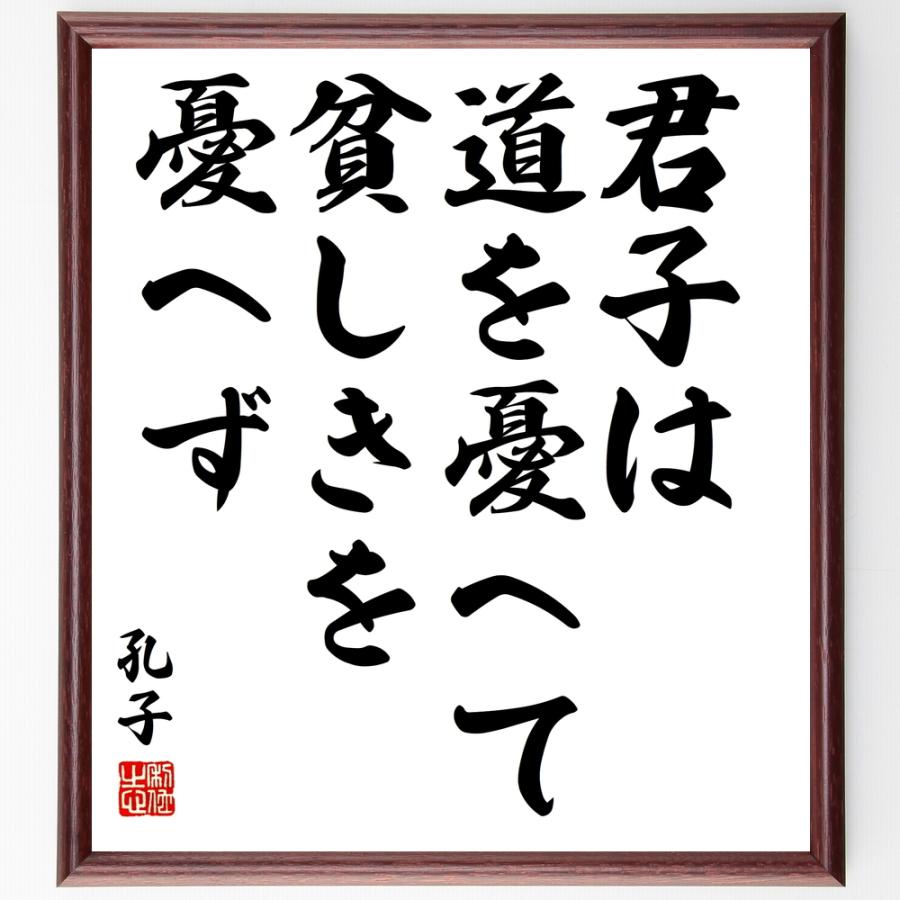 君子は
道を憂へて
貧しきを
憂へず
孔子